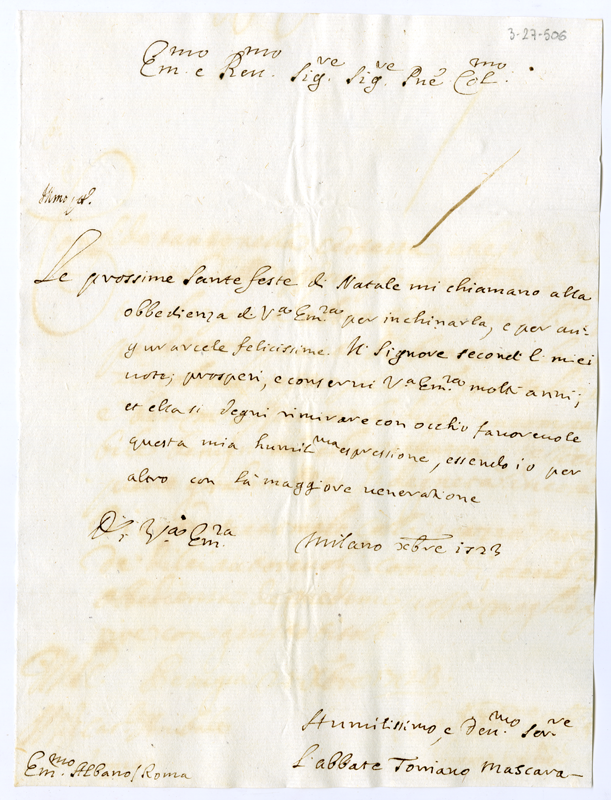 3-27-506
Em.mo e Reu.mo Sig.re Sig.re Pne Col.mo
Le prossime Sante feste di Natale mi chiamano alla
obbedienza di V.a Em.za per inchinarla, e per au-
gurarcele felicissime. Il Signore secondi li miei
uoti; prosperi, e conserui V.a Em.za molti anni;
et ella si degni rimirare con occhio fauoreuole
questa mia humil.ma espressione, essendo io per
altro con la maggiore uenerazione
Di V.a Em.za Milano Xbre 1723
Humilissimo, e Deu.mo Ser.re
Em.mo Albano / Roma L'abbate Torriano Mascara